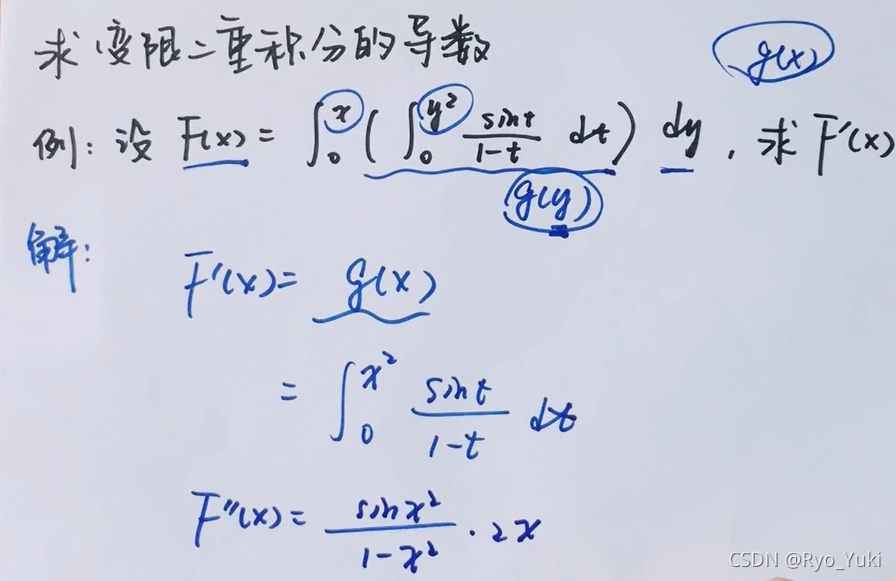 求变限二重积分的导数
g(x)
例：设 F(x) = ∫₀ˣ ( ∫₀^{y²} \frac{sint}{1-t} dt ) dy , 求 F'(x)
g(y)
解：
F'(x) = g(x)
= ∫₀^{x²} \frac{sint}{1-t} dt
F''(x) = \frac{sinx²}{1-x²} · 2x
CSDN @Ryo_Yuki